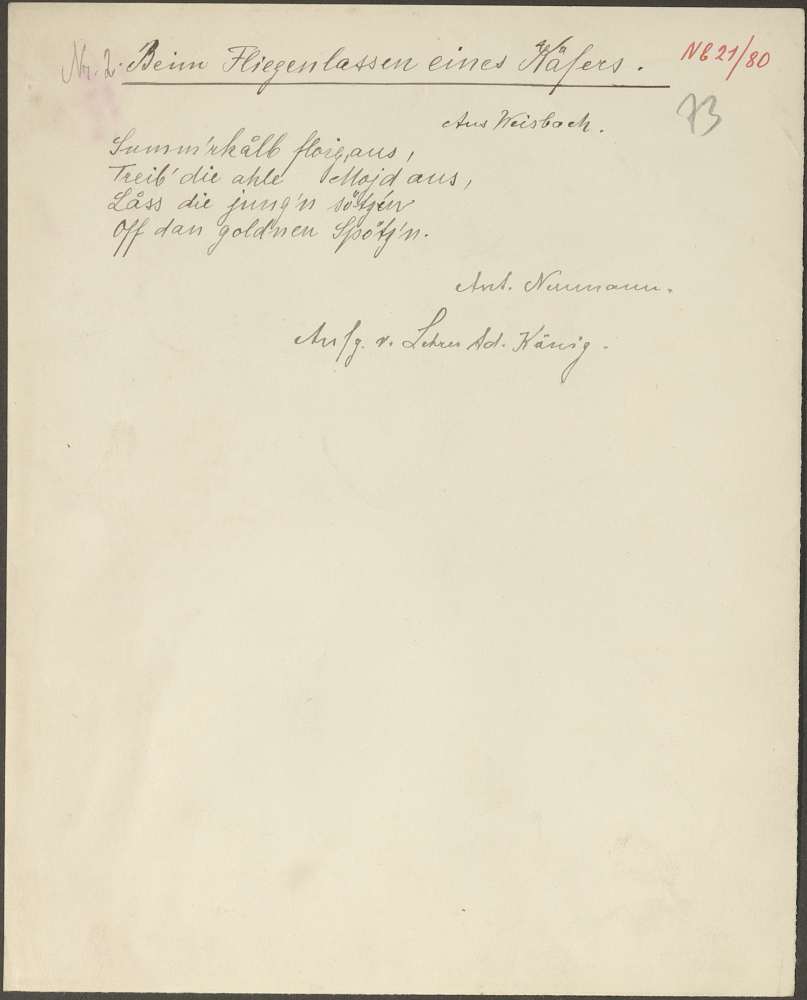 Nr. 2. Beim Fliegenlassen eines Käfers.
NE 21/80
73
Aus Weisbach.
Summ'rkålb floig aus,
Treib' die ahle Mojd aus,
Låss die jung'n sötz'n
Off dan gold'nen Spötz'n.
Ant. Neumann.
Aufg. v. Lehrer Ad. König.